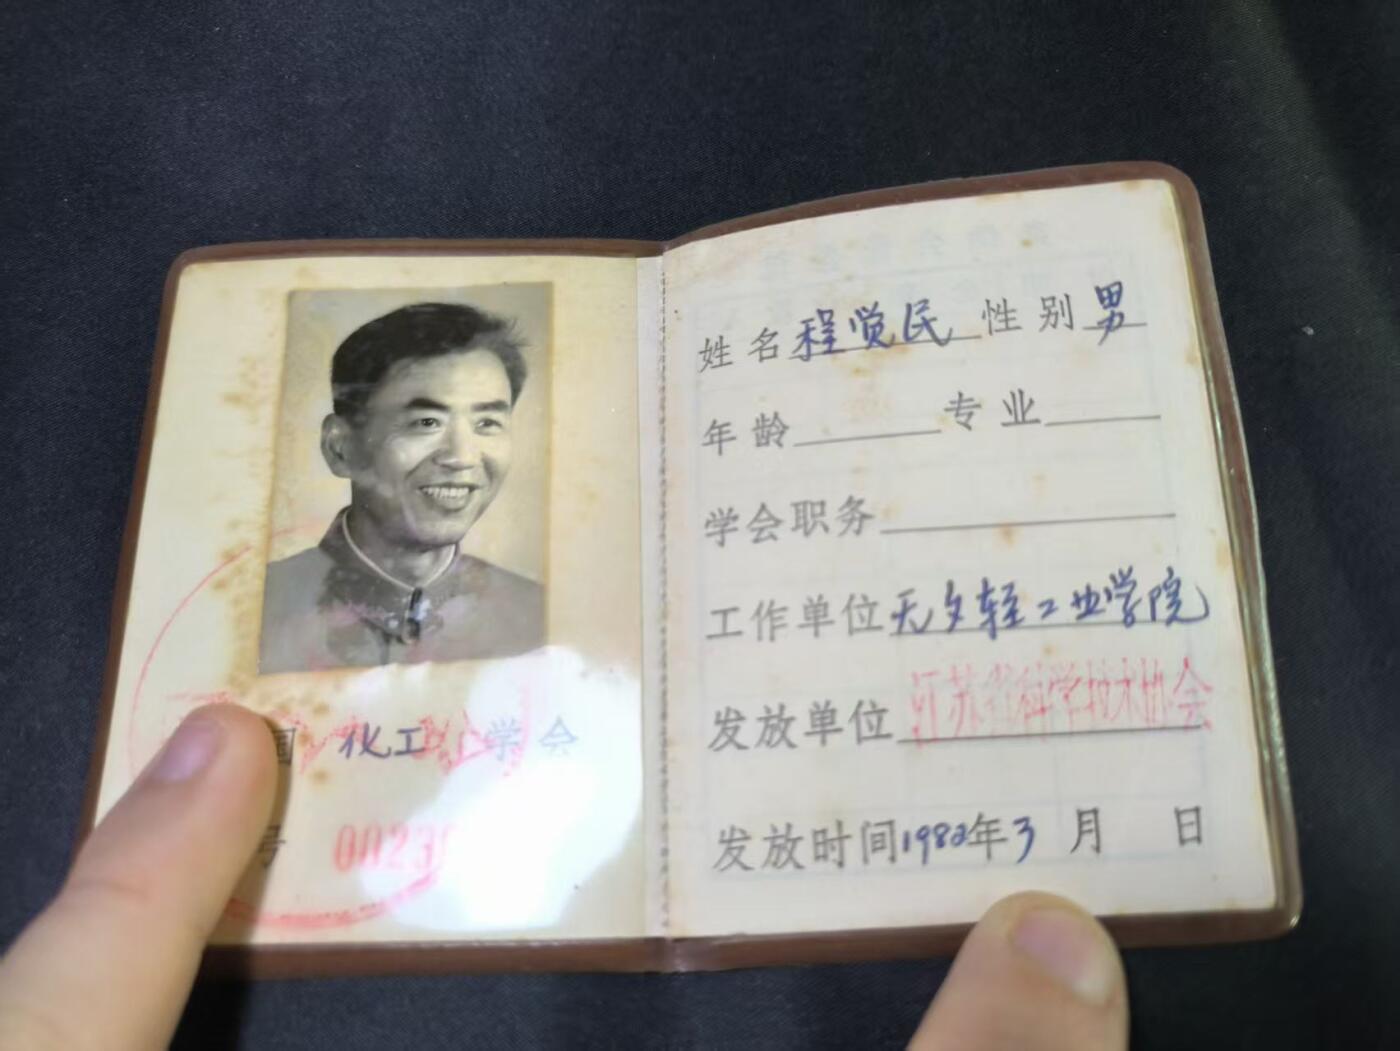 国 化工 学会
号 0023
姓名 程觉民 性别 男
年龄 专业
学会职务
工作单位 无夕轻工业学院
发放单位 江苏省科学技术协会
发放时间 1982年3月 日